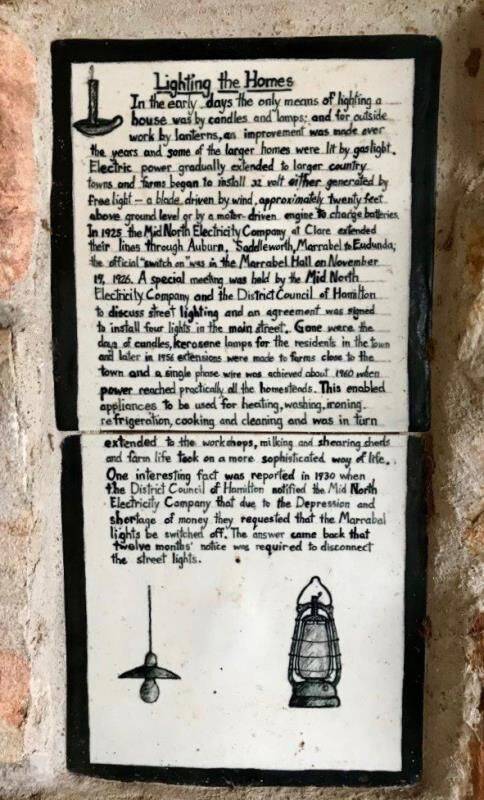 Lighting the Homes
In the early days the only means of lighting a
house was by candles and lamps; and for outside
work by lanterns, an improvement was made over
the years and some of the larger homes were lit by gaslight.
Electric power gradually extended to larger country
towns and farms began to install 32 volt either generated by
Free light - a blade driven by wind, approximately twenty feet
above ground level or by a motor driven engine to charge batteries.
In 1925 the Mid North Electricity Company at Clare extended
their lines through Auburn, Saddleworth, Marrabel to Eudunda;
the official "switch on" was in the Marrabel Hall on November
19, 1926. A special meeting was held by the Mid North
Electricity Company and the District Council of Hamilton
to discuss street lighting and an agreement was signed
to install four lights in the main street. Gone were the
days of candles, kerosene lamps for the residents in the town
and later in 1956 extensions were made to farms close to the
town and a single phase wire was achieved about 1960 when
power reached practically all the homesteads. This enabled
appliances to be used for heating, washing, ironing,
refrigeration, cooking and cleaning and was in turn
extended to the workshops, milking and shearing sheds
and farm life took on a more sophisticated way of life.
One interesting fact was reported in 1930 when
the District Council of Hamilton notified the Mid North
Electricity Company that due to the Depression and
shortage of money they requested that the Marrabel
lights be switched off. The answer came back that
twelve months' notice was required to disconnect
the street lights.